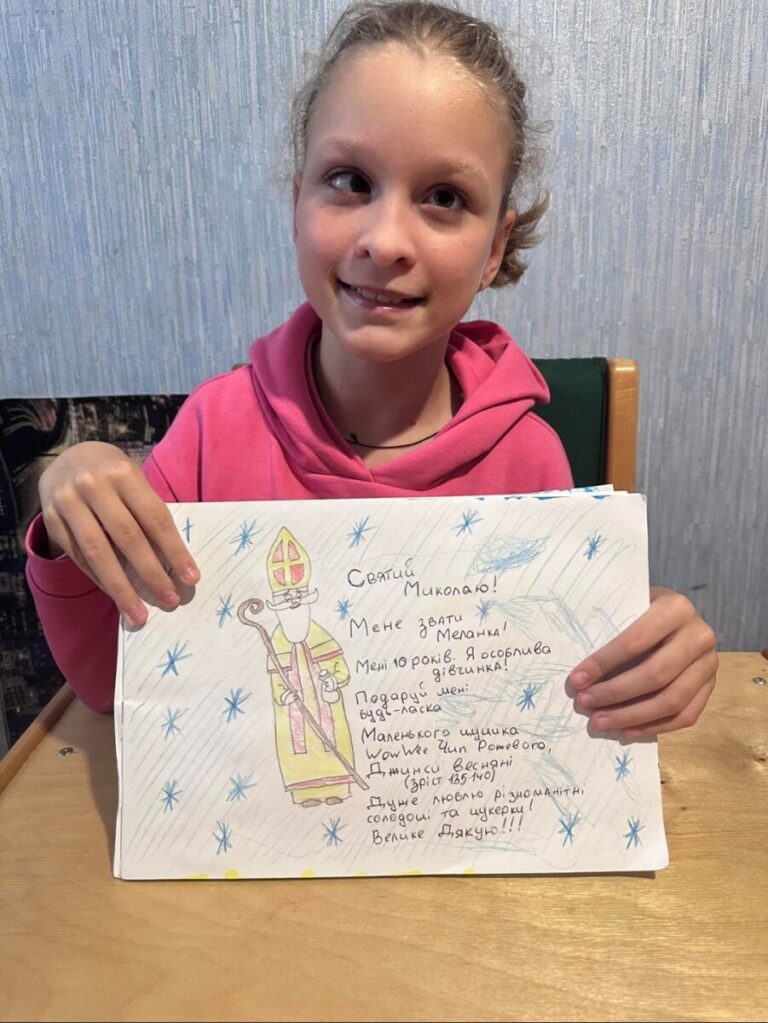 Святий
Миколаю!
Мене звати
Меланка!
Мені 10 років. Я особлива
дівчинка!
Подаруй мені
будь-ласка
Маленького цуцика
WowWee Чип Рожевого,
Джинси весняні
(зріст 135-140)
Дуже люблю різноманітні
солодощі та цукерки!
Велике Дякую!!!